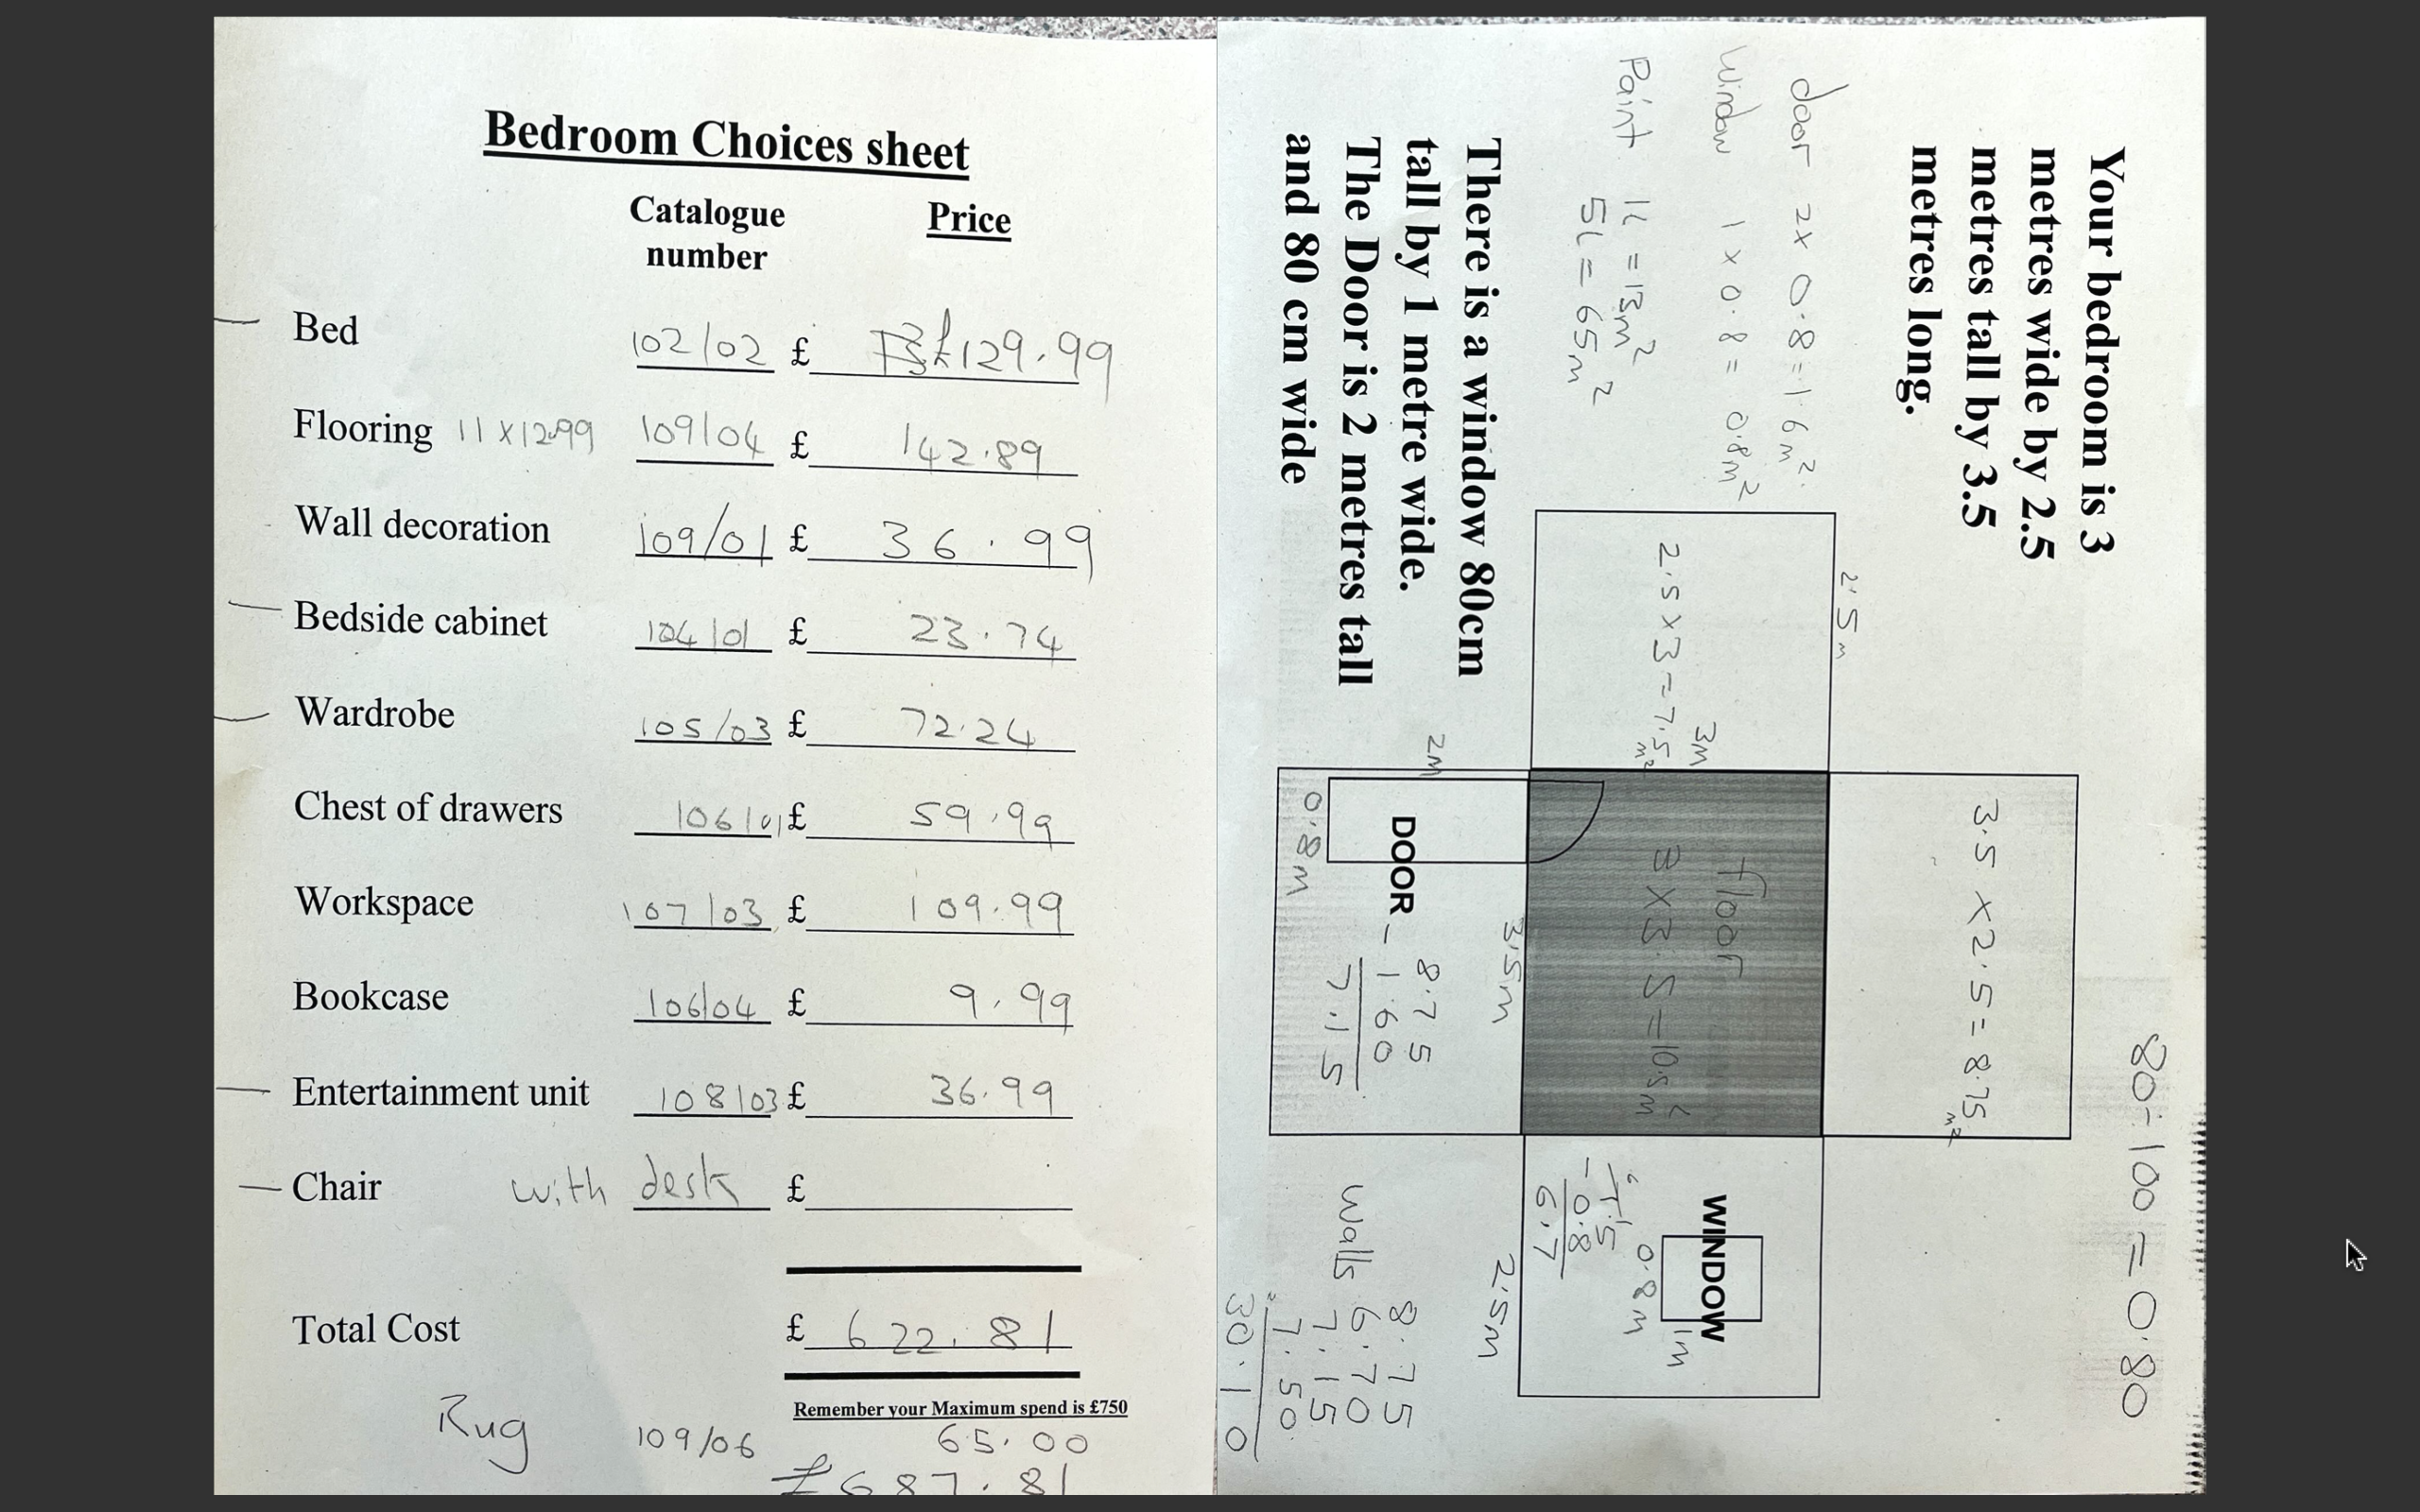 Bedroom Choices sheet
Catalogue number Price
Bed 102/02 £ 129.99
Flooring 11 x 12.99 109/04 £ 142.89
Wall decoration 109/01 £ 36.99
Bedside cabinet 104/01 £ 23.74
Wardrobe 105/03 £ 72.24
Chest of drawers 106/01 £ 59.99
Workspace 107/03 £ 109.99
Bookcase 106/04 £ 9.99
Entertainment unit 108/03 £ 36.99
Chair with desk £
Total Cost £ 622.81
Remember your Maximum spend is £750
Rug 109/06 65.00
£687.81
Your bedroom is 3
metres wide by 2.5
metres tall by 3.5
metres long.
80÷100=0.80
door 2x0.8=1.6m².
Window 1x0.8= 0.8m²
Paint 1L =13m²
5L = 65m²
There is a window 80cm
tall by 1 metre wide.
The Door is 2 metres tall
and 80 cm wide
2.5m
2.5x3=7.5m²
3m
3.5 x2.5=8.75m²
floor
3x3.5=10.5m²
2m
DOOR
0.8m
8.75
- 1.60
7.15
3.5m
WINDOW
1m
0.8m
7.5
- 0.8
6.7
2.5m
Walls 8.75
6.70
7.15
7.50
= 30.10